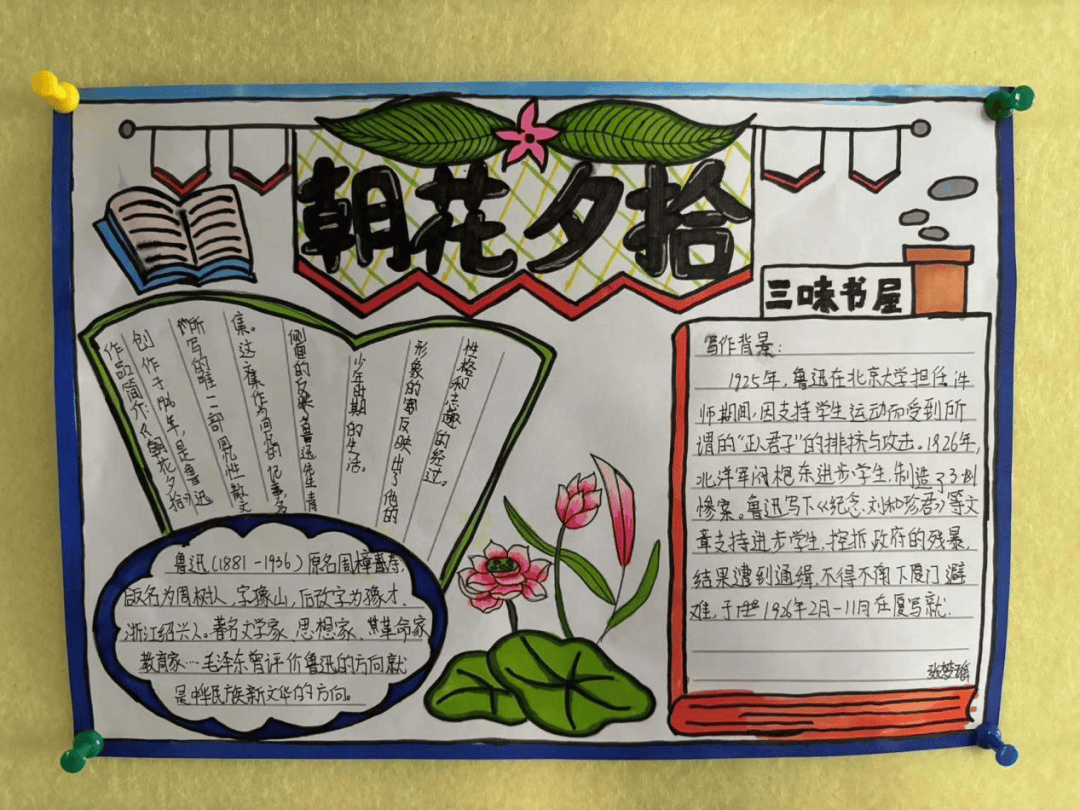 朝花夕拾
三味书屋
作品简介:《朝花夕拾》
创作于1926年,是鲁迅
所写的唯一一部 性散文
集。这一集作为回忆的记事,多
侧面的反映了鲁迅先生青
少年时期的生活。
形象的 反映出了他的
性格和志趣的经过。
鲁迅(1881-1936)原名周樟寿,
版名为周树人,字豫山,后改字为豫才,
浙江绍兴人。著名文学家、思想家、革命家
教育家…毛泽东曾评价鲁迅的方向就
是中华民族新文华的方向。
写作背景:
1925年,鲁迅在北京大学担任讲
师期间,因支持学生运动而受到所
谓的“正人君子”的排挤与攻击。1926年,
北洋军阀枪杀进步学生,制造了3·18
惨案。鲁迅写下《纪念刘和珍君》等文
章支持进步学生,控拆政府的残暴,
结果遭到通缉,不得不南下厦门避
难,于 1926年2月一11月在厦写就.
张梦瑶